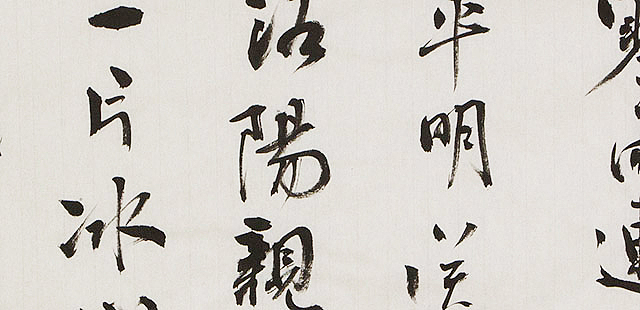 寒雨連
平明送
洛陽親
一片冰